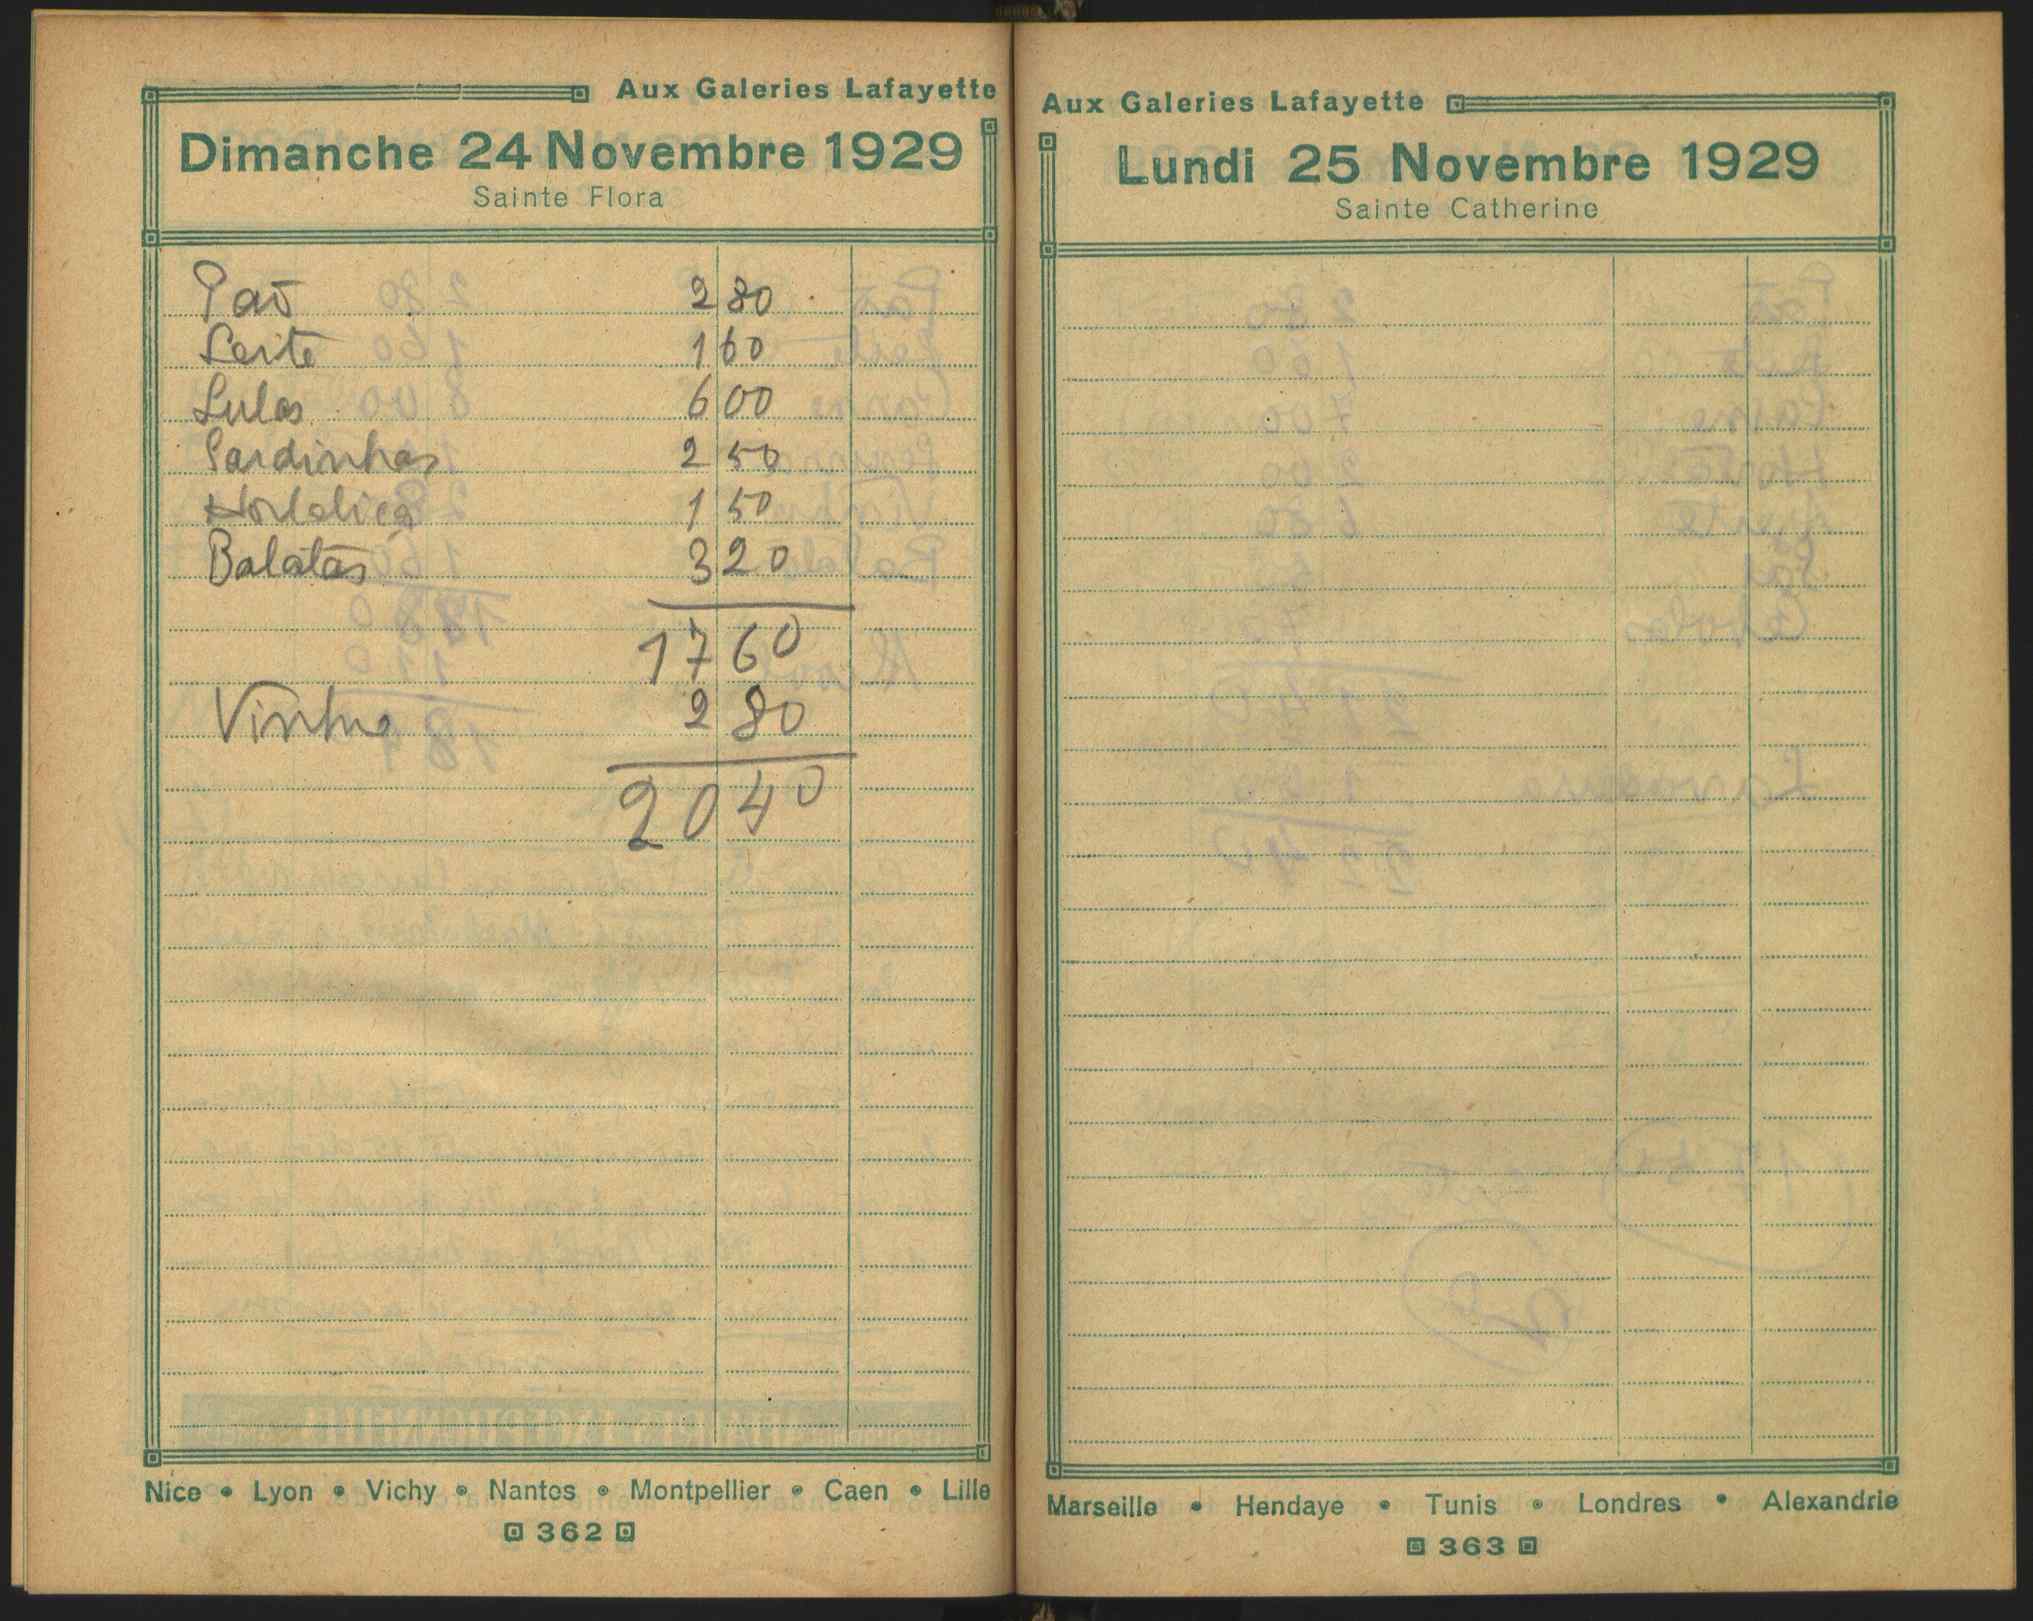 Aux Galeries Lafayette
Dimanche 24 Novembre 1929
Sainte Flora
Paõ 2 80
Leite 1 60
Lulas 6 00
Sardinhas 2 50
Hortaliça 1 50
Batatas 3 20
17 60
Vinho 2 80
20 40
Nice • Lyon • Vichy • Nantes • Montpellier • Caen • Lille
362
Aux Galeries Lafayette
Lundi 25 Novembre 1929
Sainte Catherine
Marseille • Hendaye • Tunis • Londres • Alexandrie
363